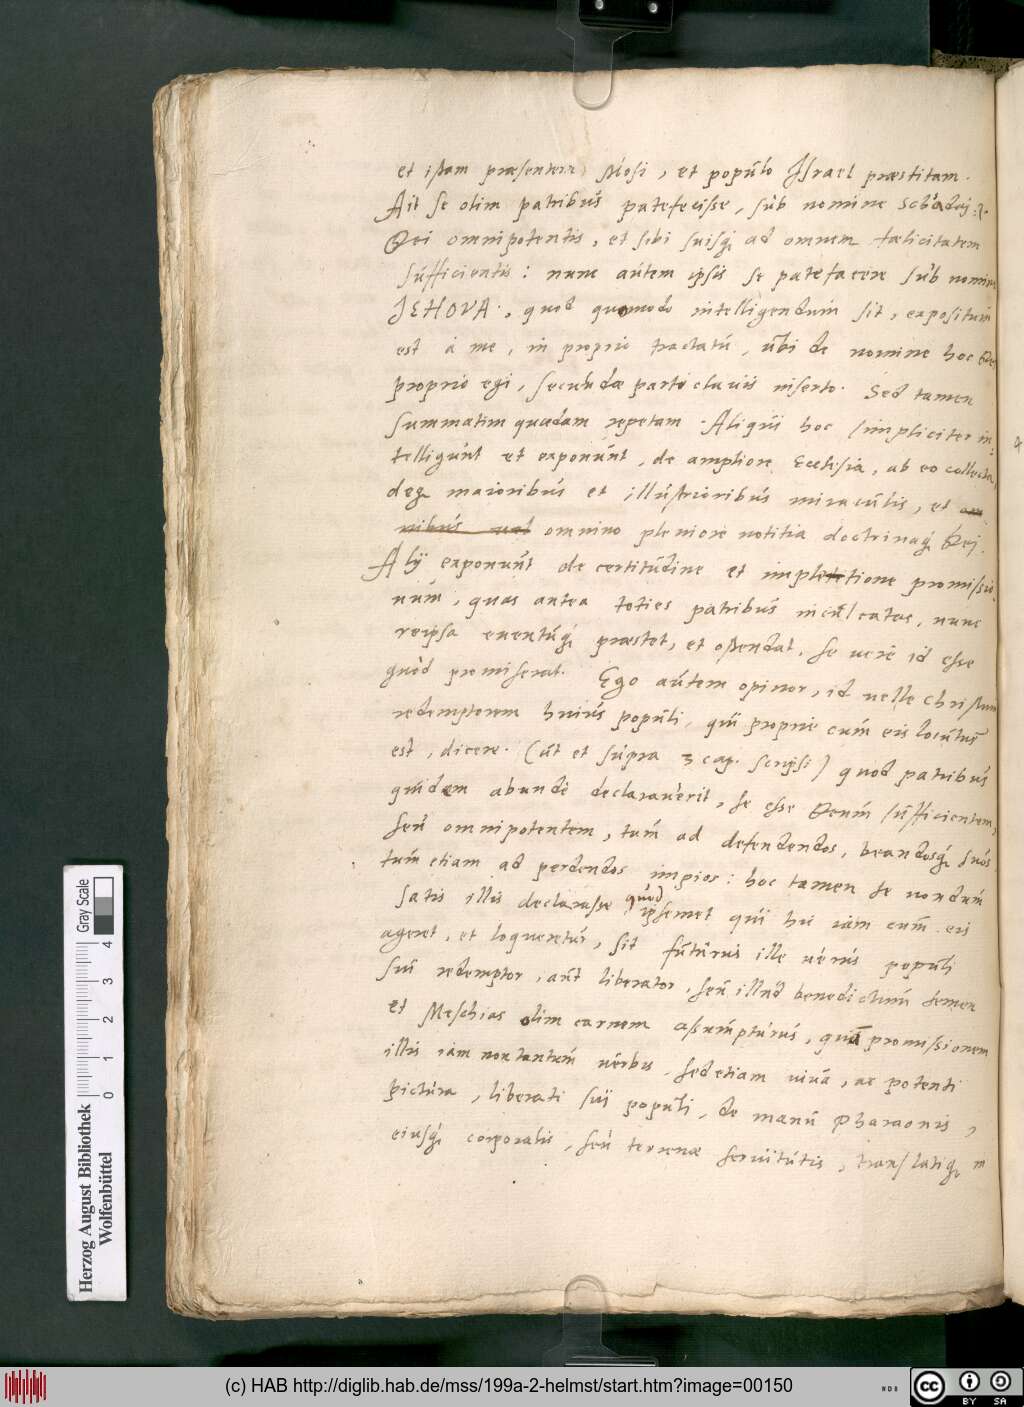 et istam praesentem Mosi, et populo Israel praestitam.
Ait se olim patribus patefecisse, sub nomine Schadaj
Dei omnipotentis, et sibi suisq; ad omnem faelicitatem
sufficientis: nunc autem ipsis se patefacere sub nomine
JEHOVA, quod quomodo intelligendum sit, expositum
est à me, in proprio tractatu, ubi de nomine hoc Dei
proprio egi, secundae parti clavis inserto. Sed tamen
summatim quaedam repetam. Aliqui hoc simpliciter in-
telligunt et exponunt, de ampliore Ecclesia, ab eo collecta,
deq; maioribus et illustrioribus miraculis, et om
nibus vel omnino pleniore notitia doctrinaq; Dei.
Alij exponunt de certitudine et impletione promissio
num, quas antea toties patribus inculcatas, nunc
reipsa eventuq; praestet, et ostendat, se vere id esse
quod promiserat. Ego autem opinor, id velle Christum
redemptorem huius populi, qui proprie cum eis locutus
est, dicere. (ut et supra 3 cap. scripsi) quod patribus
quidem abundè declaraverit, se esse Deum sufficientem,
seu omnipotentem, tum ad defendendos, beandosq; suos
tum etiam ad perdendos impios: hoc tamen se nondum
satis illis declarasse quod ipsemet qui hic iam cum eis
ageret, et loqueretur, sit futurus ille verus populi
sui redemptor, aut liberator, seu illud benedictum semen
et Meschias olim carnem assumpturus, quam promissionem
illis iam non tantum verbis, sed etiam viva, ac potenti
pictura, liberati sui populi, de manu Pharaonis,
eiusq; corporalis, seu terrenae servitutis, translatiq; in
Herzog August Bibliothek
Wolfenbüttel
Gray Scale
0 1 2 3 4
(c) HAB http://diglib.hab.de/mss/199a-2-helmst/start.htm?image=00150
cc BY SA